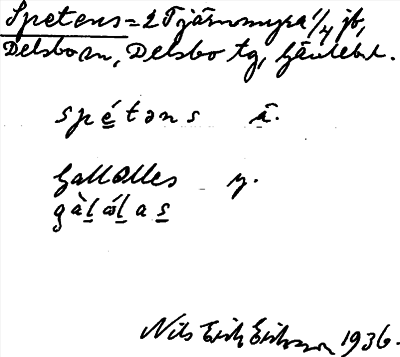 Spetens = 2 Tjärnmyra 1/4 jb,
Delsbo sn, Delsbo tg, Gävlebl.
spétəns ä.
Gallalles y.
gàlálas
Nils Erik Eriksson 1936.